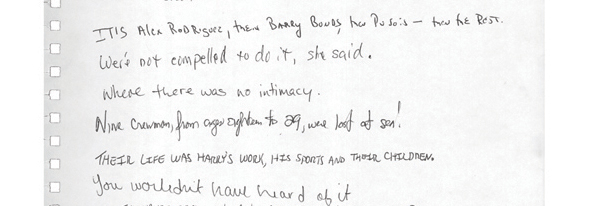 IT IS ALEX RODRIGUEZ, THEN BARRY BONDS, THEN THE REST.
We're not compelled to do it, she said.
Where there was no intimacy.
Nine Crewman, from ages eighteen to 29, were lost at sea!
THEIR LIFE WAS HARRY'S WORK, HIS SPORTS AND THEIR CHILDREN.
You wouldn't have heard of it